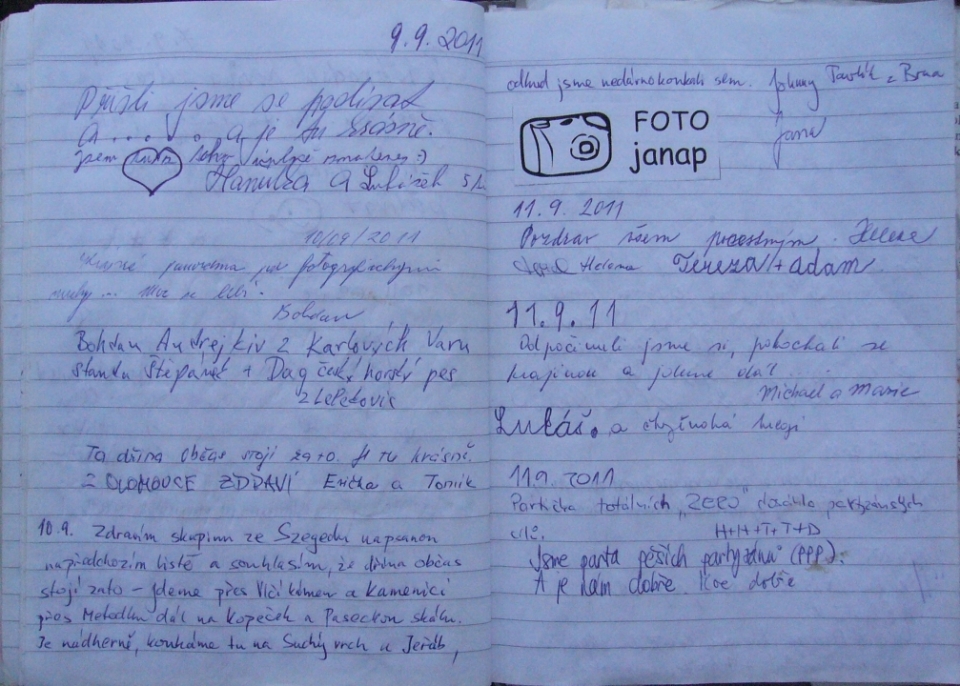 9.9.2011
Přišli jsme se podívat
a..... a je tu krásně.
jsem
Hanulka a Lukášek
10/09/2011
panorama
Bohdan
Bohdan Andrejkiv z Karlových Varu
standa Štěpánek + Dag český horský pes
z Letovic
Ta dřina občas stojí zato. Je tu krásně.
Z OLOMOUCE ZDRAVÍ Evička a Tomik
10.9. Zdravím skupinu ze Szegedu napsanou
na předchozím listě a souhlasím, že dřina občas
stojí zato – jdeme přes Vlčí kámen a Kamenici
přes Metodku dál na Kopeček a Paseckou skálu.
Je nádherně, koukáme tu na Suchý vrch a Jeřáb,
odkud jsme nedávno koukali sem. Johnny Pavlík z Brna
Jana
FOTO
janap
11.9. 2011
Pozdrav všem pocestným.
Helena Tereza + adam
11.9.11
Odpočinuli jsme si, pokochali se
krajinou a jdeme dál ....
Michael a Marie
Lukáš. a
11.9. 2011
Partička totálních „ZERO" partyzánských
H+H+T+T+D
Jsme parta pěších partyzánů (PPP).
A je nám dobře. Kde dobře